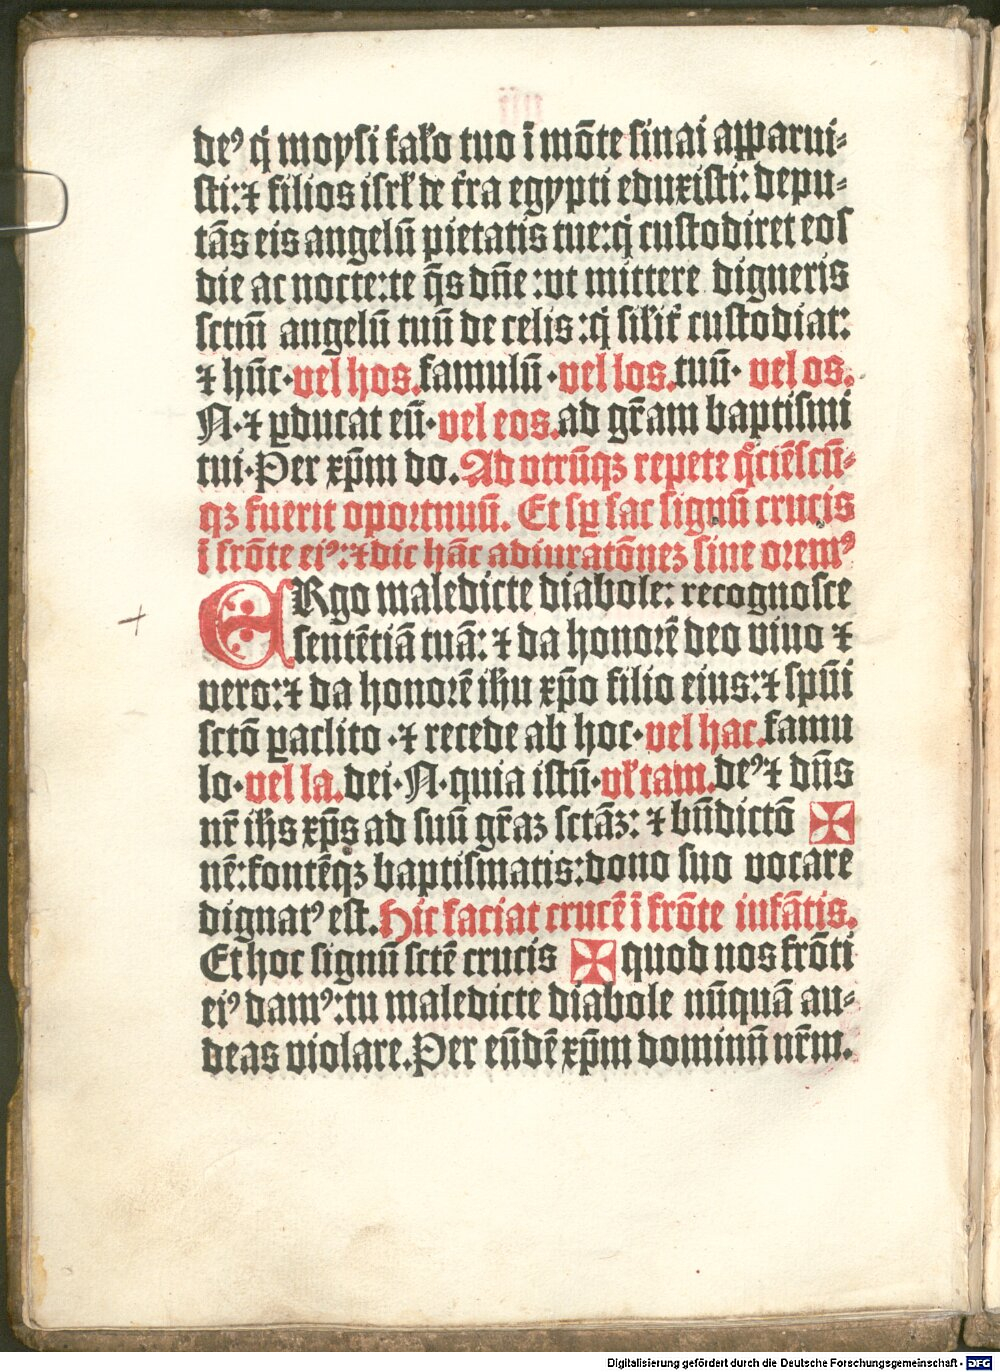 deꝰ q̇ moysi fal̉o tuo ī mōte sinai apparui⸗
sti: ⁊ filios isrl̉ de t̉ra egypti eduxisti: depu⸗
tās eis angelū pietatis tue: q̇ custodiret eos
die ac nocte: te q̄s dn̄e : ut mittere digneris
sctm̄ angelū tuū de celis : q̇ sil̉it̉ custodiat:
⁊ hūc · vel hos. famulū · vel los. tuū · vel os.
N · ⁊ ꝑducat eū · vel eos. ad gr̄am baptismi
tui · Per xp̄m do. Ad vtrūqꝫ repete qͦciēscū⸗
qꝫ fuerit oportnuū. Et sꝑ fac signū crucis
ī frōte eiꝰ: ⁊ dic hāc adiuratōnez sine oremꝰ
ERgo maledicte diabole: recognosce
sentētiā tuā: ⁊ da honorē deo viuo ⁊
vero: ⁊ da honorē ih̄u xp̄o filio eius: ⁊ spūi
sctō ꝑaclito · ⁊ recede ab hoc · vel hac. famu
lo · vel la. dei · N · quia istū · vl̉ tam. deꝰ ⁊ dn̄s
nr̄ ih̄s xp̄s ad suū gr̄aꝫ sctāꝫ: ⁊ bn̄dictō ✠
nē: fontēqꝫ baptismatis: dono suo vocare
dignatꝰ est. Hic faciat crucē ī frōte infātis.
Et hoc signū sctē crucis ✠ quod nos frōti
eiꝰ damꝰ: tu maledicte diabole nūquā au⸗
deas violare. Per eūdē xp̄m dominū nr̄m.
Digitalisierung gefördert durch die Deutsche Forschungsgemeinschaft - DFG